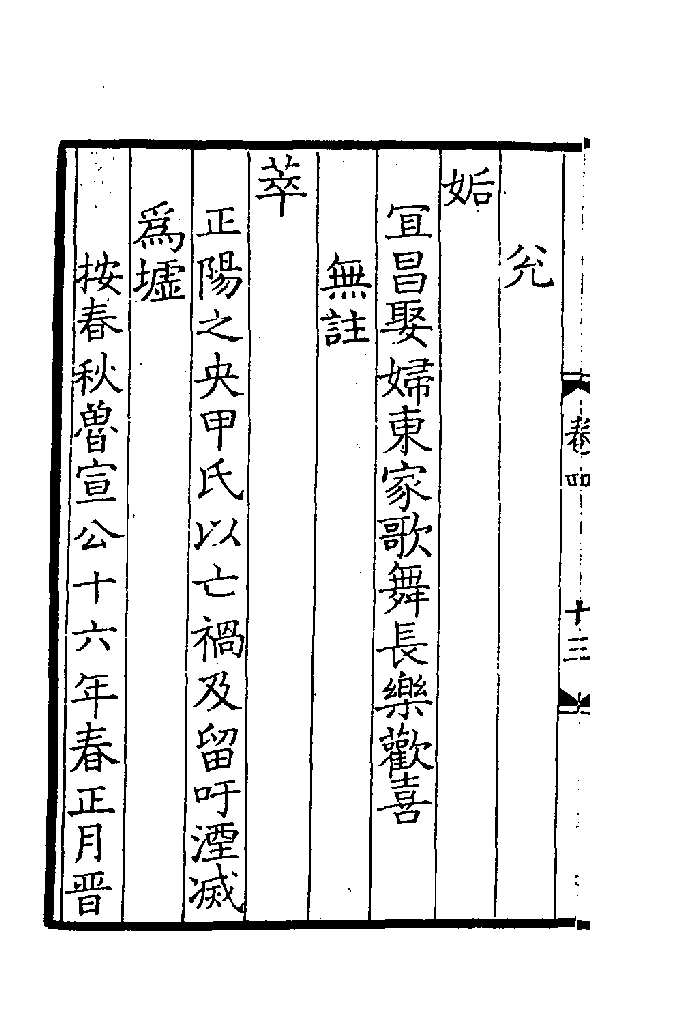 兊
姤
冝昌娶婦東家歌舞長樂歡喜
無註
萃
正陽之央甲氏以亡禍及留吁湮滅
爲墟
按春秋魯宣公十六年春正月晋
卷四
十三